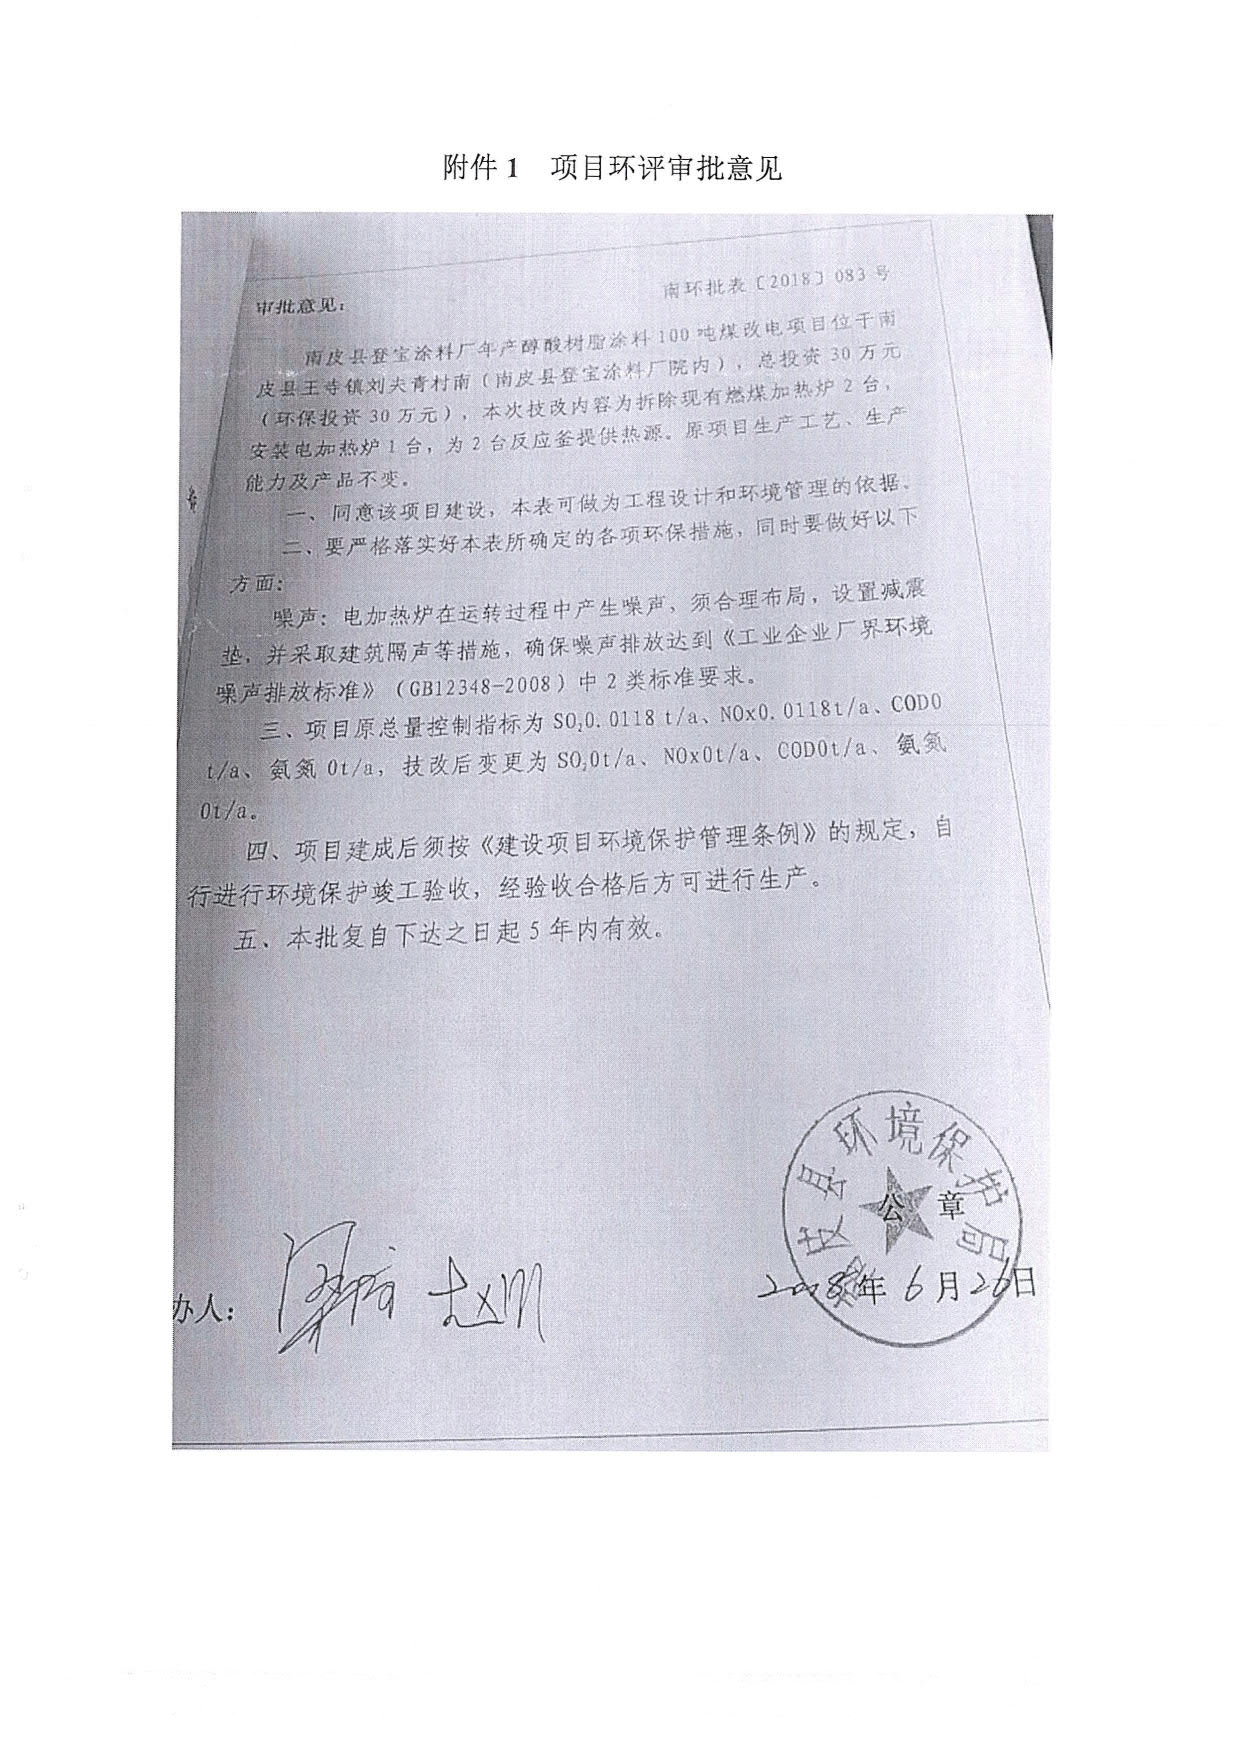 附件 1 项目环评审批意见
南环批表〔2018〕083 号
审批意见：
南皮县登宝涂料厂年产醇酸树脂涂料 100 吨煤改电项目位于南
皮县王寺镇刘夫青村南（南皮县登宝涂料厂院内），总投资 30 万元
（环保投资 30 万元），本次技改内容为拆除现有燃煤加热炉 2 台，
安装电加热炉 1 台，为 2 台反应釜提供热源。原项目生产工艺、生产
能力及产品不变。
一、同意该项目建设，本表可做为工程设计和环境管理的依据。
二、要严格落实好本表所确定的各项环保措施，同时要做好以下
方面：
噪声：电加热炉在运转过程中产生噪声，须合理布局，设置减震
垫，并采取建筑隔声等措施，确保噪声排放达到《工业企业厂界环境
噪声排放标准》（GB12348-2008）中 2 类标准要求。
三、项目原总量控制指标为 SO₂0.0118 t/a、NOx0.0118t/a、COD0
t/a、氨氮 0t/a，技改后变更为 SO₂0t/a、NOx0t/a、COD0t/a、氨氮
0t/a。
四、项目建成后须按《建设项目环境保护管理条例》的规定，自
行进行环境保护竣工验收，经验收合格后方可进行生产。
五、本批复自下达之日起 5 年内有效。
南皮县环境保护局
公 章
办人：
2018年 6 月 20日